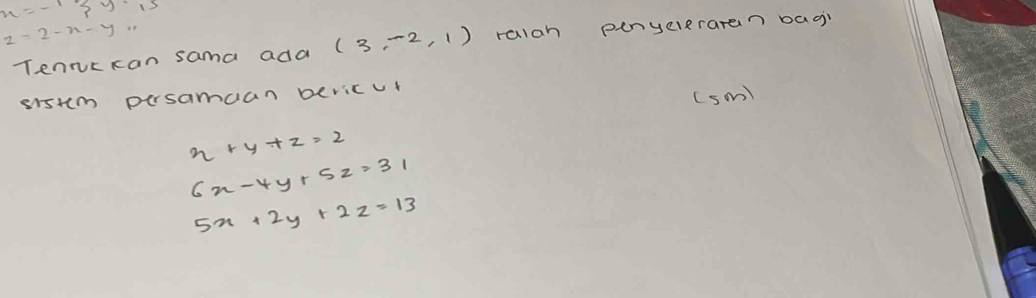 z = 2 - x - y
Tentukkan sama ada (3, -2, 1) ialah penyelesaian bagi
sistem persamaan berikut (5m)
x + y + z = 2
6x - 4y + 5z = 31
5x + 2y + 2z = 13